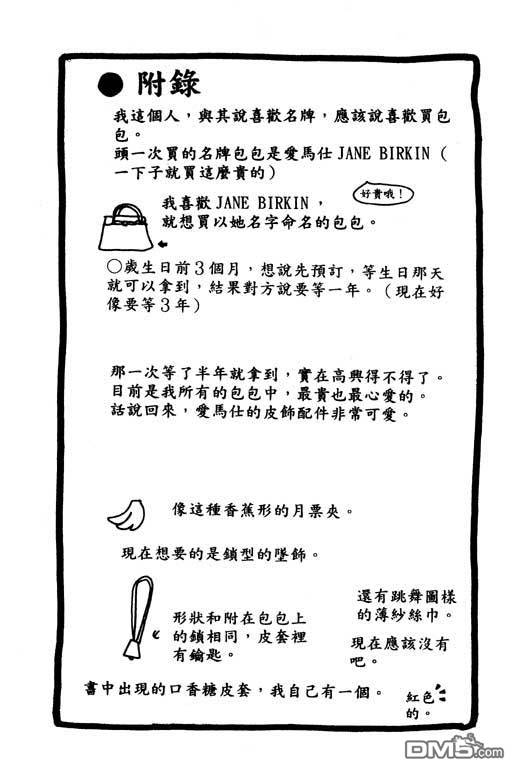 ● 附錄
我這個人，與其說喜歡名牌，應該說喜歡買包
包。
頭一次買的名牌包包是愛馬仕 JANE BIRKIN（
一下子就買這麼貴的）
好貴哦！
我喜歡 JANE BIRKIN，
就想買以她名字命名的包包。
○歲生日前３個月，想說先預訂，等生日那天
就可以拿到，結果對方說要等一年。（現在好
像要等３年）
那一次等了半年就拿到，實在高興得不得了。
目前是我所有的包包中，最貴也最心愛的。
話說回來，愛馬仕的皮飾配件非常可愛。
像這種香蕉形的月票夾。
現在想要的是鎖型的墜飾。
形狀和附在包包上
的鎖相同，皮套裡
有鑰匙。
還有跳舞圖樣
的薄紗絲巾。
現在應該沒有
吧。
書中出現的口香糖皮套，我自己有一個。
紅色
的。
DM5.com